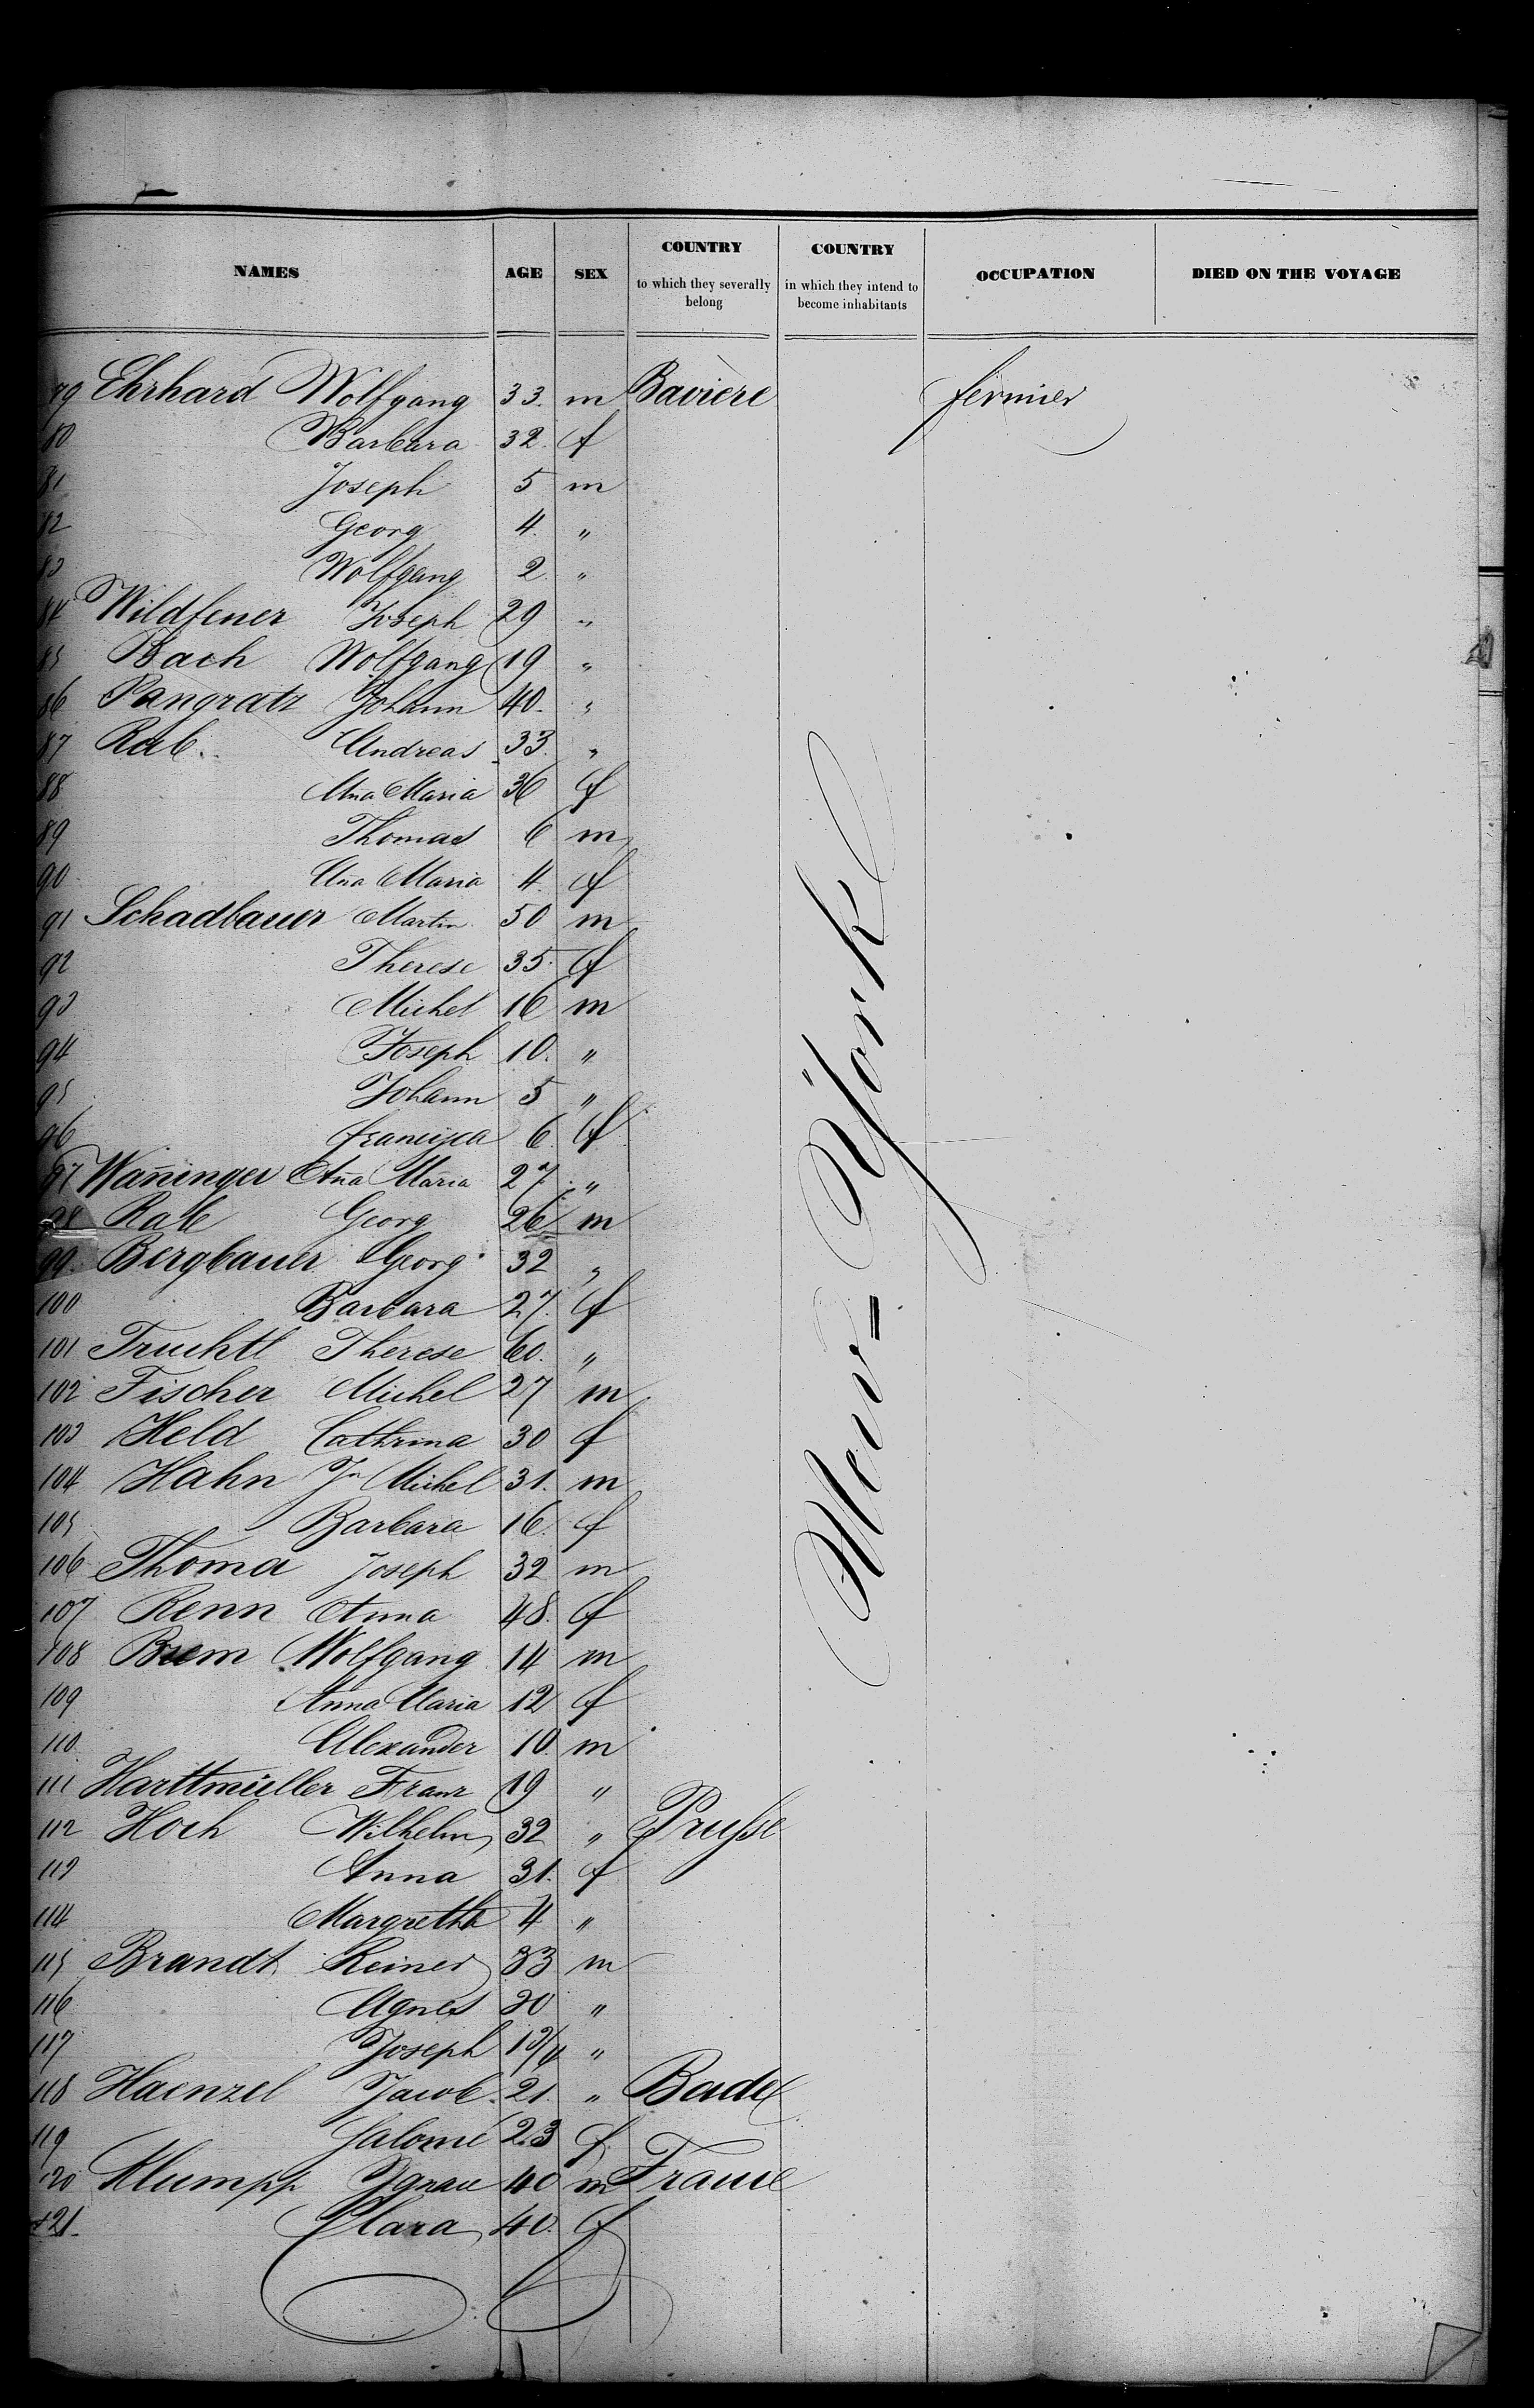 NAMES AGE SEX COUNTRY to which they severally belong COUNTRY in which they intend to become inhabitants OCCUPATION DIED ON THE VOYAGE
79 Ehrhard Wolfgang 33. m Baviere fermier
80 Barbara 32. f
81 Joseph 5 m
82 Georg 4. "
83 Wolfgang 2. "
84 Wildfeuer Joseph 29 "
85 Bach Wolfgang 19 "
86 Pangratz Johann 40. "
87 Rab. Andreas 33. "
88 Aña Maria 36 f
89 Thomas 6 m
90 Aña Maria 4. f
91 Schadbauer Martin. 50 m
92 Therese 35. f
93 Michel 16 m
94 Joseph 10. "
95 Johann 5 "
96 Francisca 6. f
97 Wañinger Aña Maria 27. "
98 Rab Georg 26 m
99. Bergbauer Georg 32 "
100 Barbara 27. f
101 Truchtl Therese 60. "
102 Fischer Michel 27 m
103 Held Cathrina 30 f
104 Hahn Jn Michel 31. m
105 Barbara 16. f
106 Thoma Joseph 32 m
107 Renn Anna 48. f
108 Brem Wolfgang 14 m
109 Anna Maria 12 f
110 Alexander 10. m
111 Harttmüller Franz 19 "
112 Hoch Wilhelm 32 " Prusse
113 Anna 31. f
114 Margretha 4 "
115 Brandt Reiner 33 m
116 Agnes 30 "
117 Joseph 1 3/4 "
118 Haenzel Jacob. 21. " Bade
119 Salomé 23 f.
120 Klumpp Ignace 40 m France
121. Clara 40. f
New-York